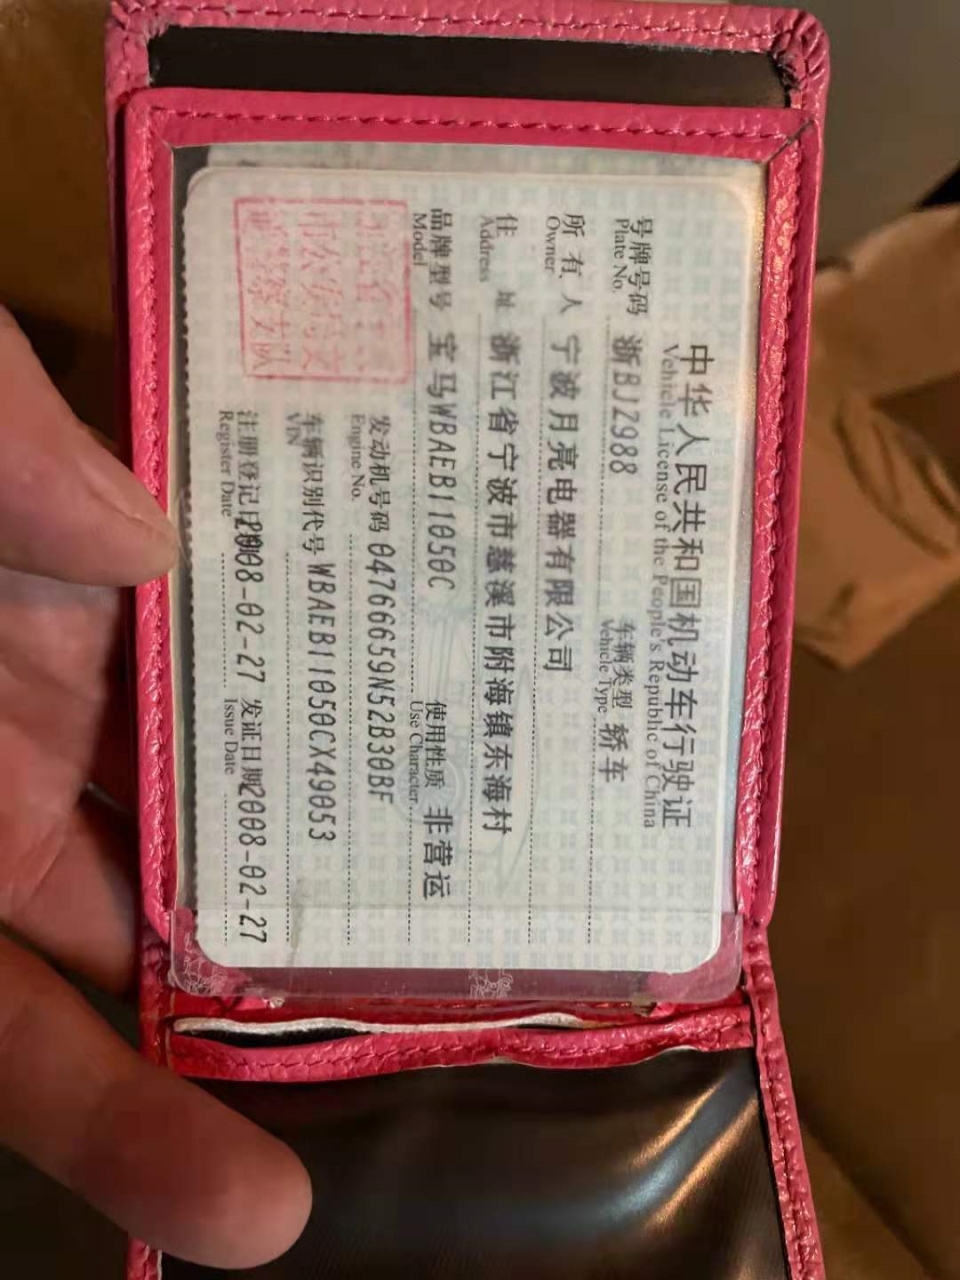 中华人民共和国机动车行驶证
Vehicle License of the People's Republic of China
号牌号码 浙BJZ988 车辆类型 轿车
Plate No. Vehicle Type
所有人 宁波月亮电器有限公司
Owner
住址 浙江省宁波市慈溪市附海镇东海村
Address
品牌型号 宝马WBAEB11050C 使用性质 非营运
Model Use Character
发动机号码 04766659N52B30BF
Engine No.
车辆识别代号 WBAEB11050CX49053
VIN
注册登记日期 2008-02-27 发证日期 2008-02-27
Register Date Issue Date
市公安局交
警察支队